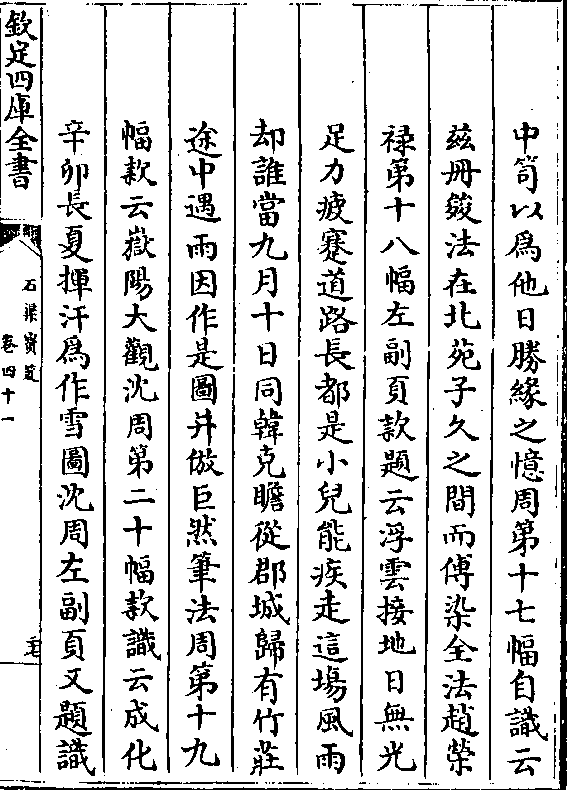 中笥以爲他日勝緣之憶周第十七幅自識云
兹冊皴法在北苑子久之間而傅染全法趙榮
禄第十八幅左副頁款題云浮雲接地日無光
足力疲蹇道路長都是小兒能疾走這場風雨
却誰當九月十日同韓克瞻從郡城歸有竹莊
途中遇雨因作是圖并倣巨然筆法周第十九
幅款云嶽陽大觀沈周第二十幅款識云成化
辛卯長夏揮汗爲作雪圖沈周左副頁又題識
欽定四庫全書
石渠寳笈
卷四十一